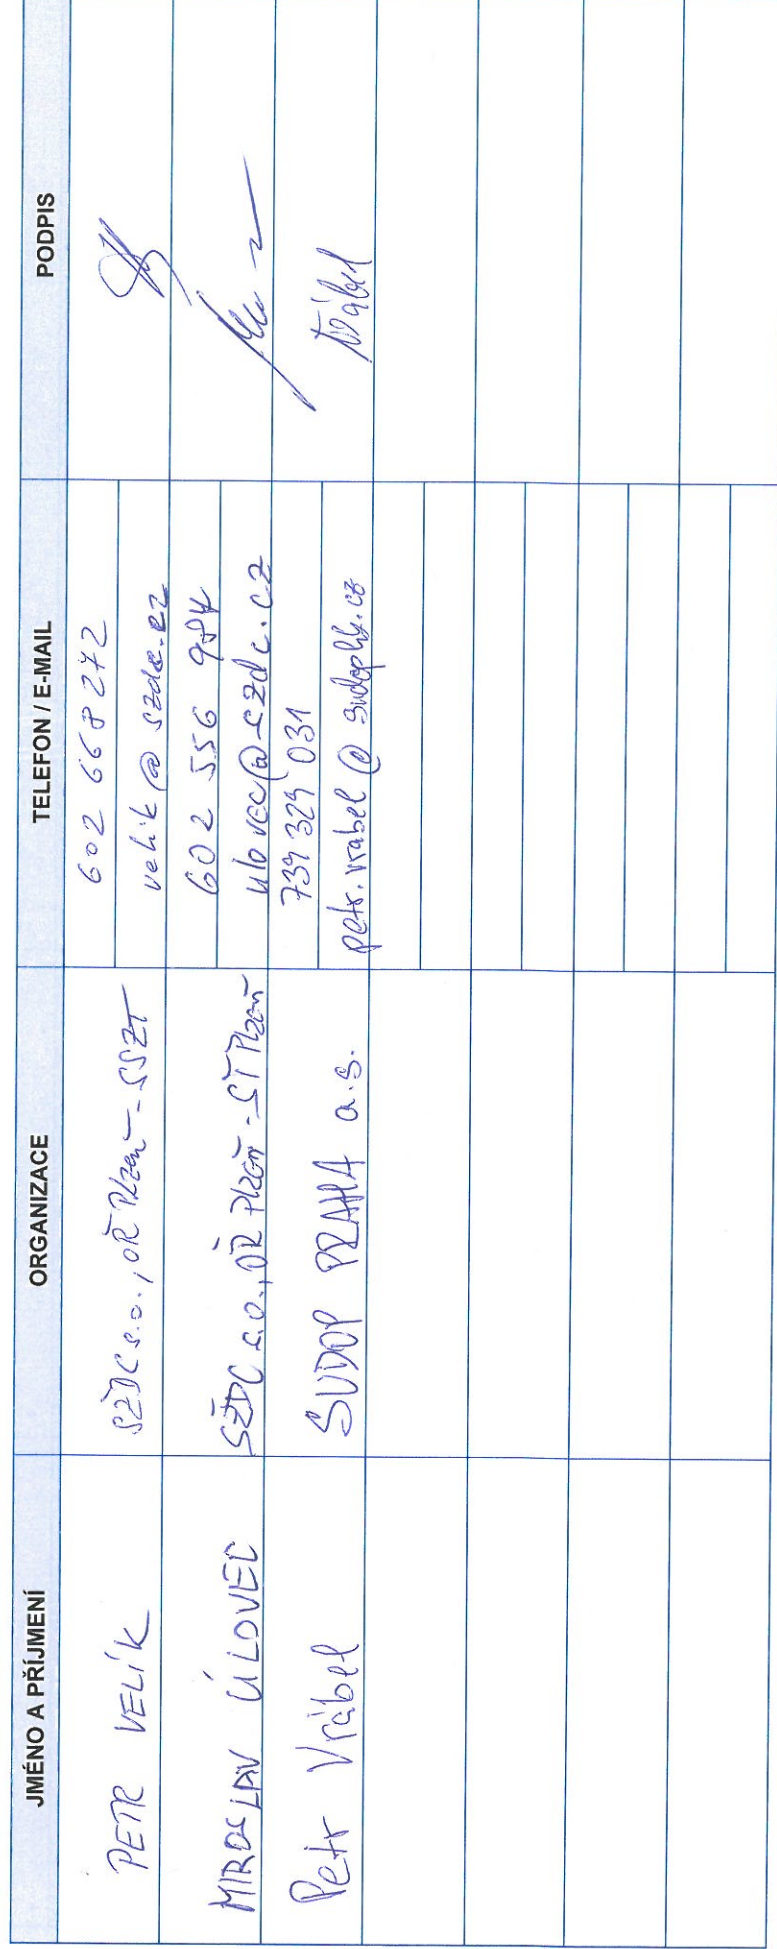 JMÉNO A PŘÍJMENÍ ORGANIZACE TELEFON / E-MAIL PODPIS
PETR VELÍK SŽDC s.o., OŘ Plzeň - SSZT 602 668 272
velik@szdc.cz
MIROSLAV ÚLOVEC SŽDC s.o., OŘ Plzeň - ST Plzeň 602 556 984
ulovec@szdc.cz
Petr Vrábel SUDOP PRAHA a.s. 739 329 031 Vrábel
petr.vrabel@